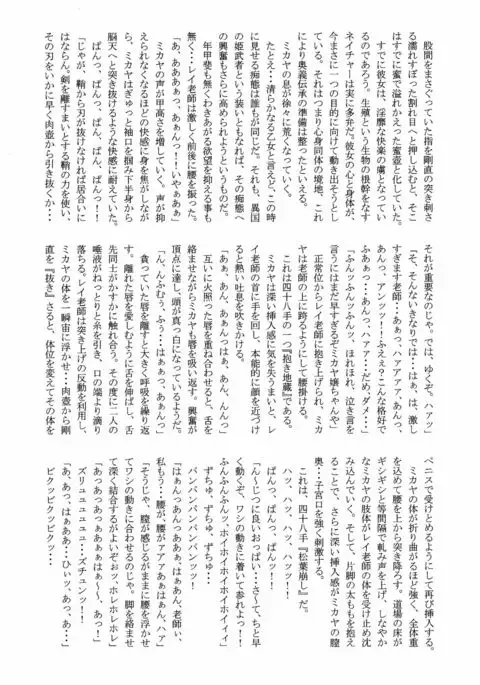 股間をまさぐっていた指を剛直の突き刺さ
る濡れそぼった割れ目へと押し込むと、そこ
はすでに蜜で溢れかえった蜜壺と化していた。
すでに彼女は、淫靡な快楽の虜となって
いるのであろう。生殖という生物の根幹をなす
ネイチャーは実に多弁だ。彼女の心と身体が、
今まさに一つの目的に向けて動き出そうとし
ている、それはつまり心身同体の境地、これ
により奥義伝承の準備は整ったといえる。
ミカヤの息が徐々に荒くなっていく。
たとえ…清らかなる乙女と言えど、この時
に見せる痴態は誰もが同じだ。それも、異国
の姫武者という装いともなれば、その痴態へ
の興奮もさらに高められようというものだ。
年甲斐も無くわきあがる欲望を抑える事も
無く…レイ老師は激しく前後に腰を振った。
「あ、あああぁっ、あぁんっ！！いやぁあぁ」
ミカヤの声が甲高さを増していく。声が抑
えられなくなるほどの快感に身を焦がしなが
ら、ミカヤはぎゅっと袖口を掴み下半身から
脳天へと突き抜けるような快感に耐えていた。
ぱんっ、ぱんっ、ぱんっ、ぱんっ！！
「じゃが、鞘から刃が抜けなければ居合いに
はならん。剣を離すまいとする鞘の力を使い、
その刃をいかに早く肉壺から引き抜くか…
それが重要なのじゃ。では、ゆくぞ。ハァッ」
「そ、そんないきなりでは…はぁ、は、激し
すぎます老師…あぁっ、ハアアアア、あんっ、
あんっ、アンッッ！！ふぇぇっこんな格好で
ふあぁっ…あんっ、ハアァ…だめ、ダメ…」
「ふんッふんッふんッ、ほれほれ、泣き言を
言うにはまだ早すぎるぞミカヤ嬢ちゃんや」
正常位からレイ老師に抱き上げられ、ミカ
ヤは老師の上に跨るようにして腰掛ける。
これは四十八手の一つ『抱き地蔵』である。
ミカヤは深い挿入感に気を失うまいと、レ
イ老師の首に手を回し、本能的に顔を近づけ
ると熱い吐息を吹きかける。
「あぁ、あん、あぁんっはぁ、あん、んんっ」
互いに火照った唇を重ね合わせると、舌を
絡ませながらミカヤも唇を吸い返す。興奮が
頂点に達し、頭が真っ白になっているようだ。
「ん、んふむぅ、ふぅ…はぁっ、あぁんっ」
貪っていた唇を離すと大きく呼吸を繰り返
す。離れた唇を愛しむように舌を伸ばし、舌
先同士がかすかに触れ合う。その度に二人の
唾液がねっとりと糸を引き、口の端より滴り
落ちる。レイ老師は突き上げの反動を利用し、
ミカヤの体を一瞬宙に浮かせ…肉壺から剛
直を『抜き』さると、体位を変えてその体を
ペニスで受けとめるようにして再び挿入する。
ミカヤの体が折り曲がるほど強く、全体重
を込めて腰を上から突き降ろす。道場の床が
ギシギシと等間隔で軋み声を上げ、しなやか
なミカヤの肢体がレイ老師の体を受け止め沈
み込んでいく。そして、片脚の太ももを抱え
ることで、さらに深い挿入感がミカヤの膣
奥…子宮口を強く刺激する。
これは、四十八手『松葉崩し』だ。
ハッ、ハッ、ハッ、ハッッ！！
ぱんっ、ぱんっ、ぱんッ！！
「ん〜じつに良いおっぱい…さ〜て、ちと早
く動くぞ、ワシの動きに着いて参れよっ！！
ふんふんふんッ、ホイホイホイホイホイィィ」
ずちゅ、ずちゅ、ずちゅ…
パンパンパンパンパンッ！！
「はぁんっあんっああぁ、はぁあん、老師ぃ、
私もう…腰が、腰がアアアあぁはぁん、ハァ」
「そうじゃ、膣が感じるがままに腰を浮かせ
てワシの動きに合わせるのじゃ。脚を絡ませ
て深く結合するがよいぞおッ、ホレホレホレ」
「あっあっあっぁあぁぁはぁ〜、あっ！」
ズリュュュュュ…ズチュンッ！
「あ、あっ、はぁああ…ひぃッ、あっ、あ…」
ビクッビクッビクッ…